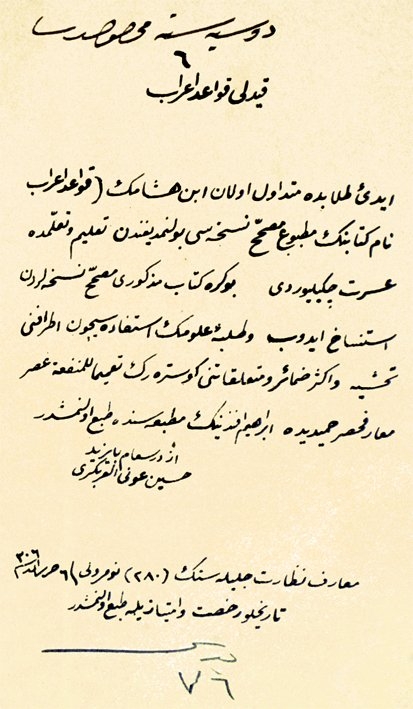 دوسیه سنه مخصوصدر
٦
قیدلی قواعد اعراب
ایدئ طلابده متداول اولان ابن هشامك (قواعد اعراب
نام كتابنك مطبوع مصحّح نسخه‌سی بولنمدیغندن تعلیم و تعلّمده
عسرت چكیلیوردی بوكره كتاب مذكوری مصحّح نسخه‌لردن
استنساخ ایدوب وطلبهٔ علومك استفاده‌سیچون اطرافنی
تحشیه واكثر ضمائر ومتعلقاتنی كوستره‌رك تعمیماً للمنفعة عصر
معارفحصر حمیدیده ابراهیم افندینك مطبعه‌سنده طبع اولنمشدر
از درسعام بایزید
حسین عونی العربكری
معارف نظارت جلیله‌سنك (٢٨٠) نومرولی
تاریخلو رخصت وامتیازیله طبع اولنمشدر
٧٦